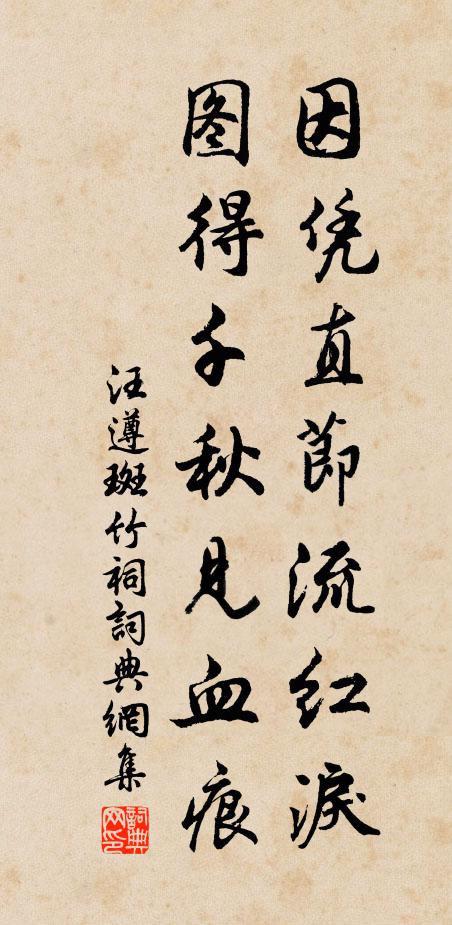 因凭直節流红淚
图得千秋見血痕
汪遵斑竹祠詞典網集
詞典网印